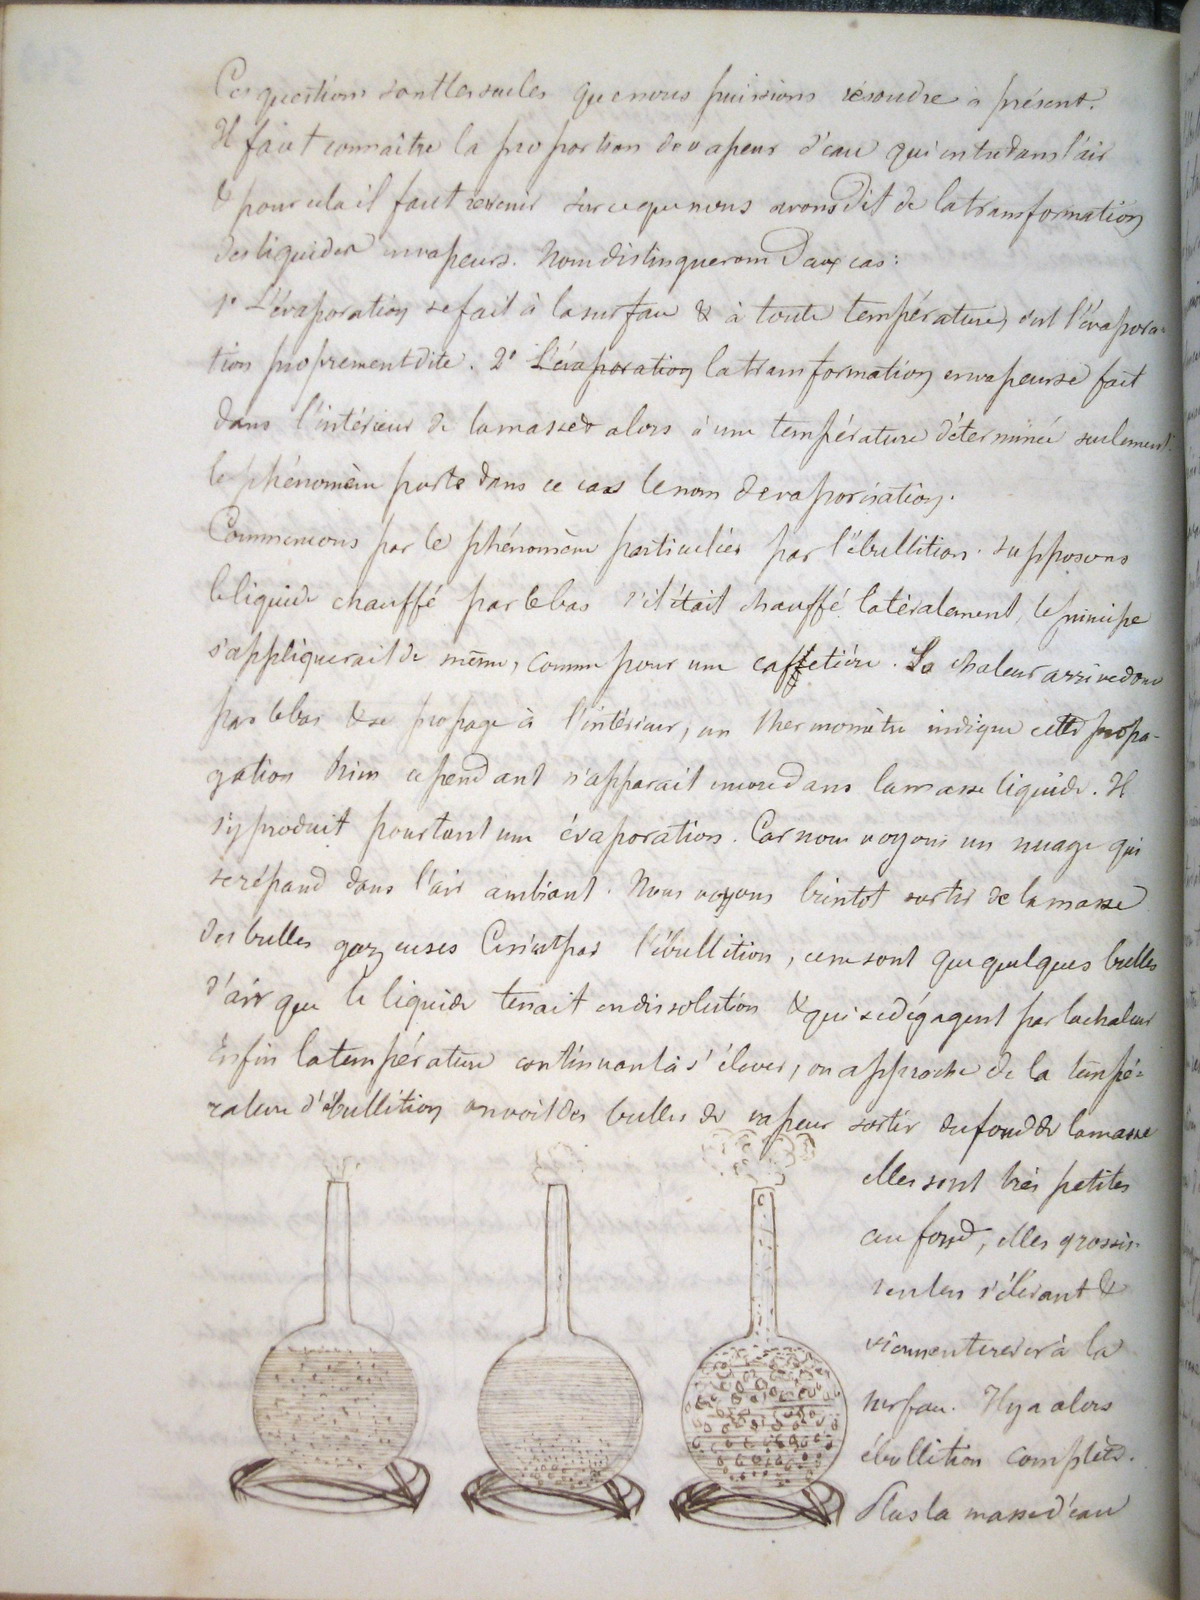 Ces questions sont les seules que nous puissions résoudre à présent.
Il faut connaître la proportion de vapeur d'eau qui entre dans l'air
& pour cela il faut revenir sur ce que nous avons dit de la transformation
des liquides en vapeurs. Nous distinguerons deux cas:
1° L'évaporation se fait à la surface & à toute température, c'est l'évapora-
tion proprement dite. 2° L'évaporation la transformation en vapeur se fait
dans l'intérieur de la masse & alors à une température déterminée seulement
le phénomène porte dans ce cas le nom de vaporisation.
Commencons par le phénomène particulier par l'ébullition. Supposons
le liquide chauffé par le bas s'il était chauffé latéralement, le principe
s'appliquerait de même, comme pour une caffetière. La chaleur arrive donc
par le bas & se propage à l'intérieur, un thermomètre indique cette propa-
gation Rien cependant n'apparait encore dans la masse liquide. Il
s'y produit pourtant une évaporation. Car nous voyons un nuage qui
se répand dans l'air ambiant. Nous voyons bientot sortir de la masse
des bulles gazeuses Ce n'est pas l'ébullition, ce ne sont que quelques bulles
d'air que le liquide tenait en dissolution & qui se dégagent par la chaleur
Enfin la température continuant à s'élever, on approche de la tempé-
rature d'ébullition on voit des bulles de vapeur sortir du fond de la masse
elles sont très petites
au fond, elles grossis-
sent en s'élevant &
viennent crever à la
surface. Il y a alors
ébullition complète.
Plus la masse d'eau